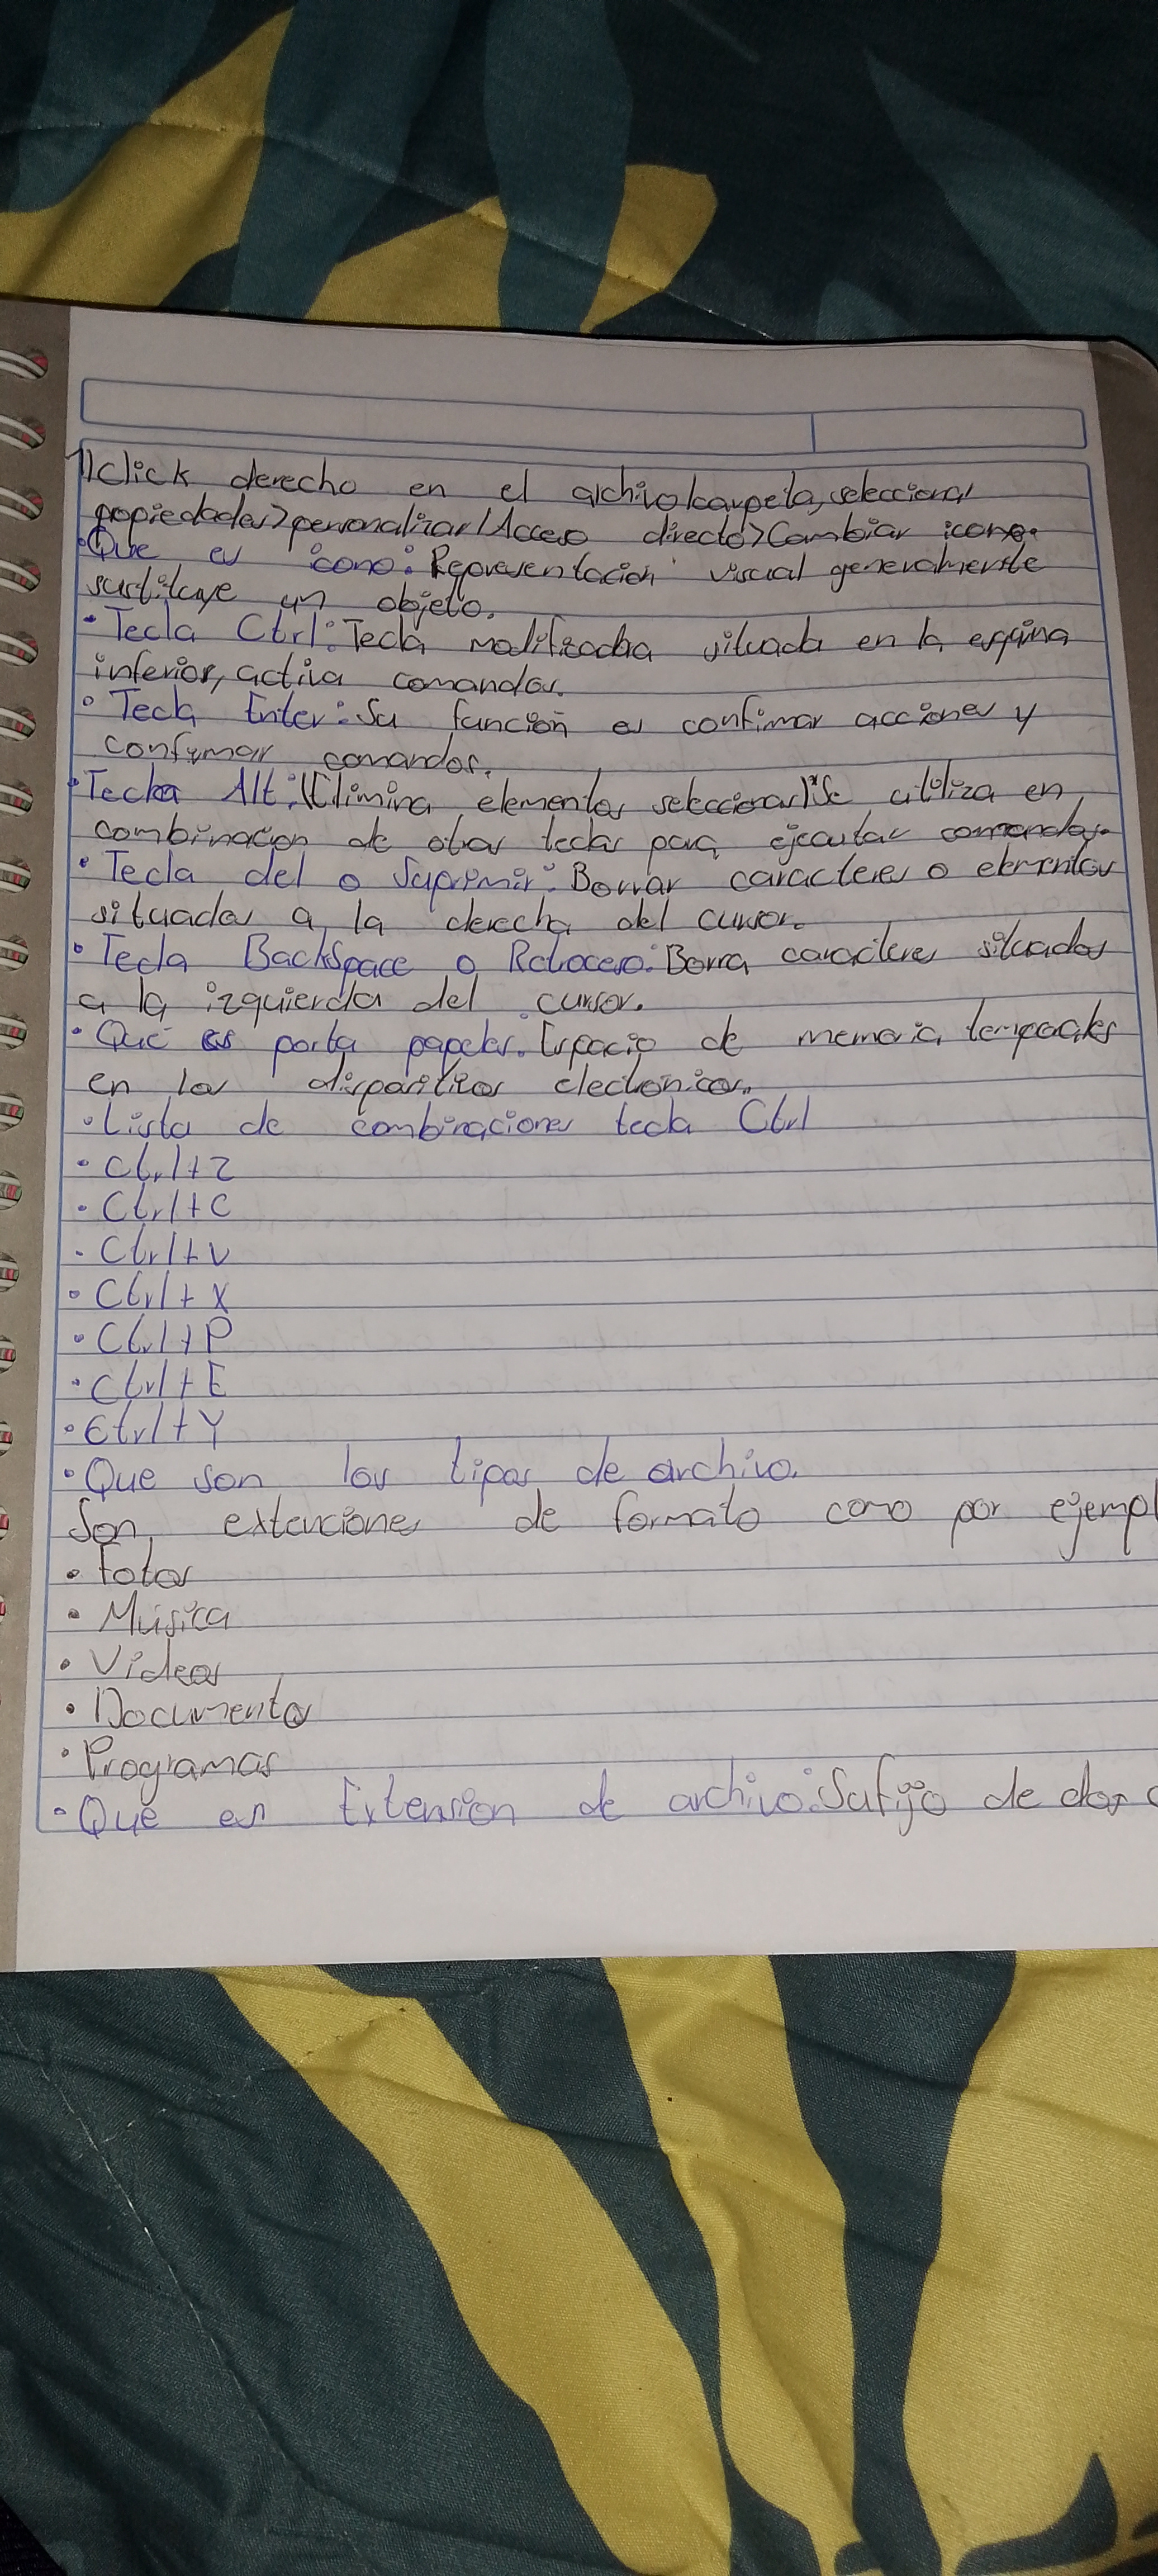 1) Click derecho en el archivo/carpeta, seleccionar
propiedades>personalizar/Acceso directo>Cambiar icono.
• Que es icono: Representación visual generalmente
sustituye un objeto.
• Tecla Ctrl: Tecla modificadra situada en la esquina
inferior, activa comandos.
• Tecla Enter: Su función es confimar acciones y
confirmar comandos.
• Tecka Alt: \(Elimina elementos seleccionar)\ Se utiliza en
combinacion de otras teclas para ejecutar comandos.
• Tecla del o Suprimir: Borrar caracteres o elementos
situados a la derecha del cursor.
• Tecla BackSpace o Retoceso: Borra caracteres situados
a la izquierda del cursor.
• Qué es porta papeles: Espacio de memoria temporales
en los dispositivos electronicos.
• Lista de combinaciones tecla Ctrl
• Ctrl+Z
• Ctrl+C
• Ctrl+V
• Ctrl+X
• Ctrl+P
• Ctrl+E
• Ctrl+Y
• Que son los tipos de archivo.
Son extenciones de formato como por ejempl
• Fotos
• Música
• Videos
• Documentos
• Programas
• Que es Extension de archivo: Sufijo de dos